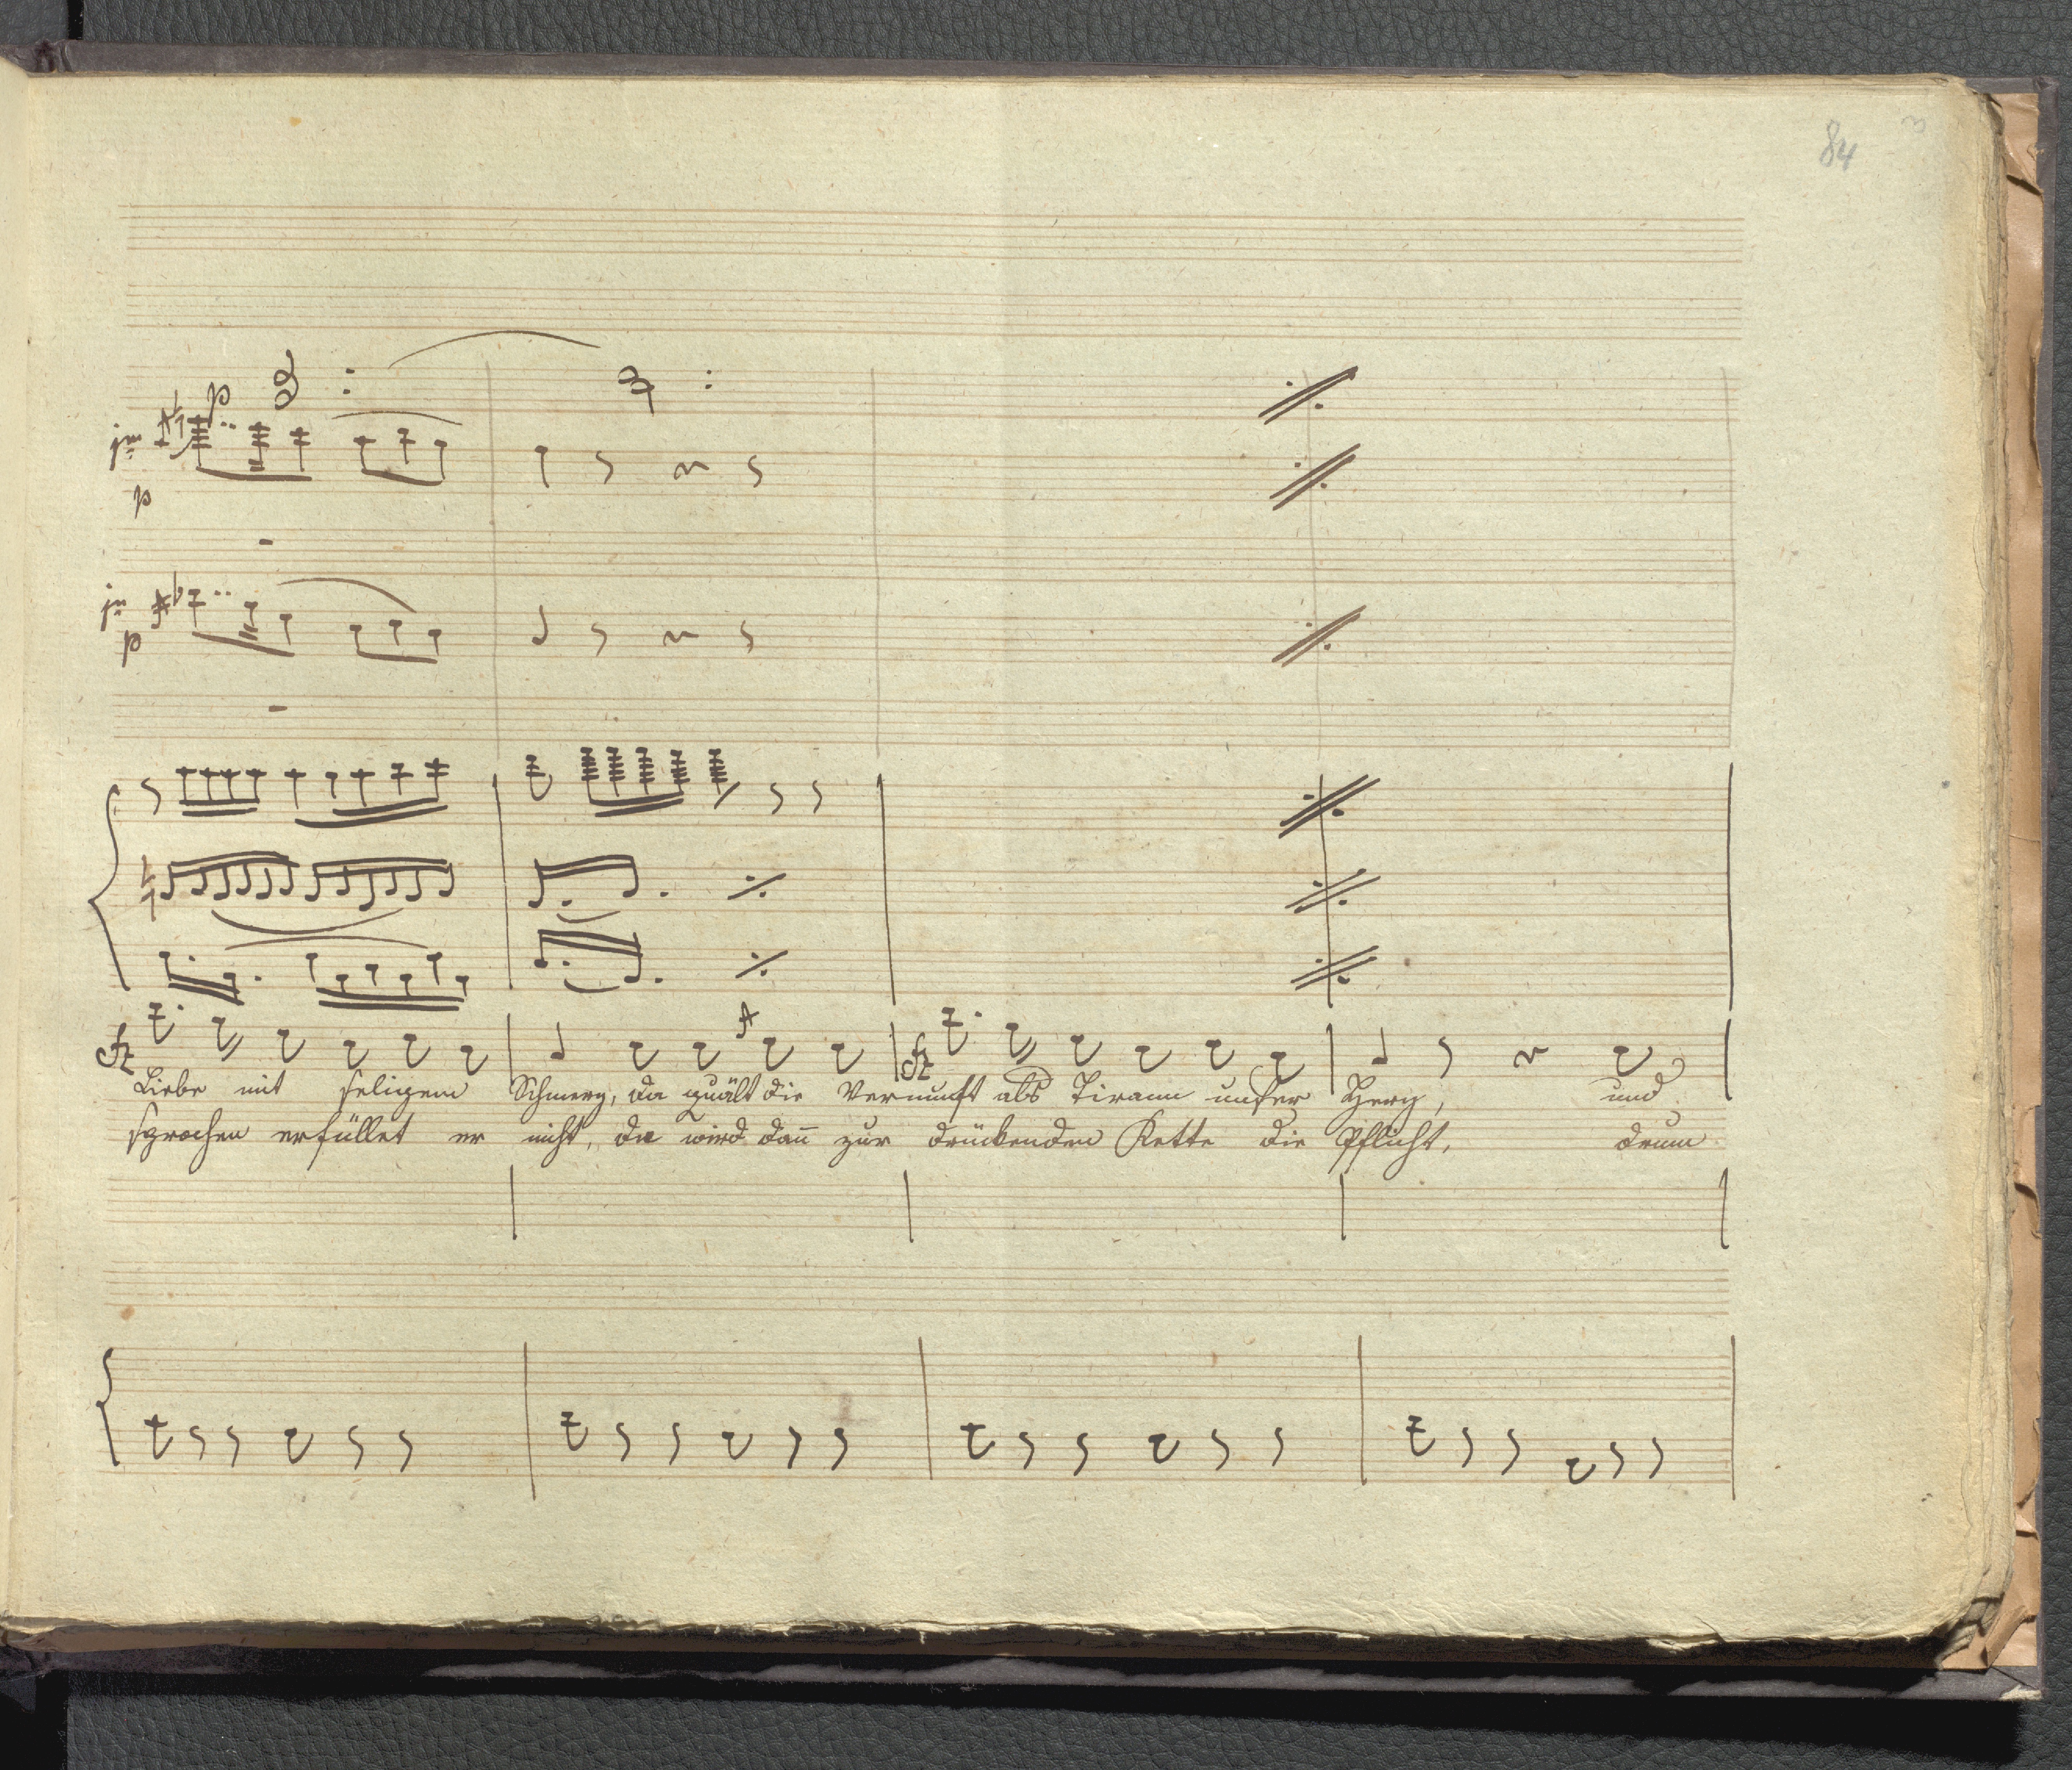 84
p
im
p
im
p
Liebe mit seligem Schmerz, da quält die Vernunft als Tirann unser Herz, und
sprochen erfüllet er nicht, da wird dañ zur drückenden Kette die Pflicht, drum